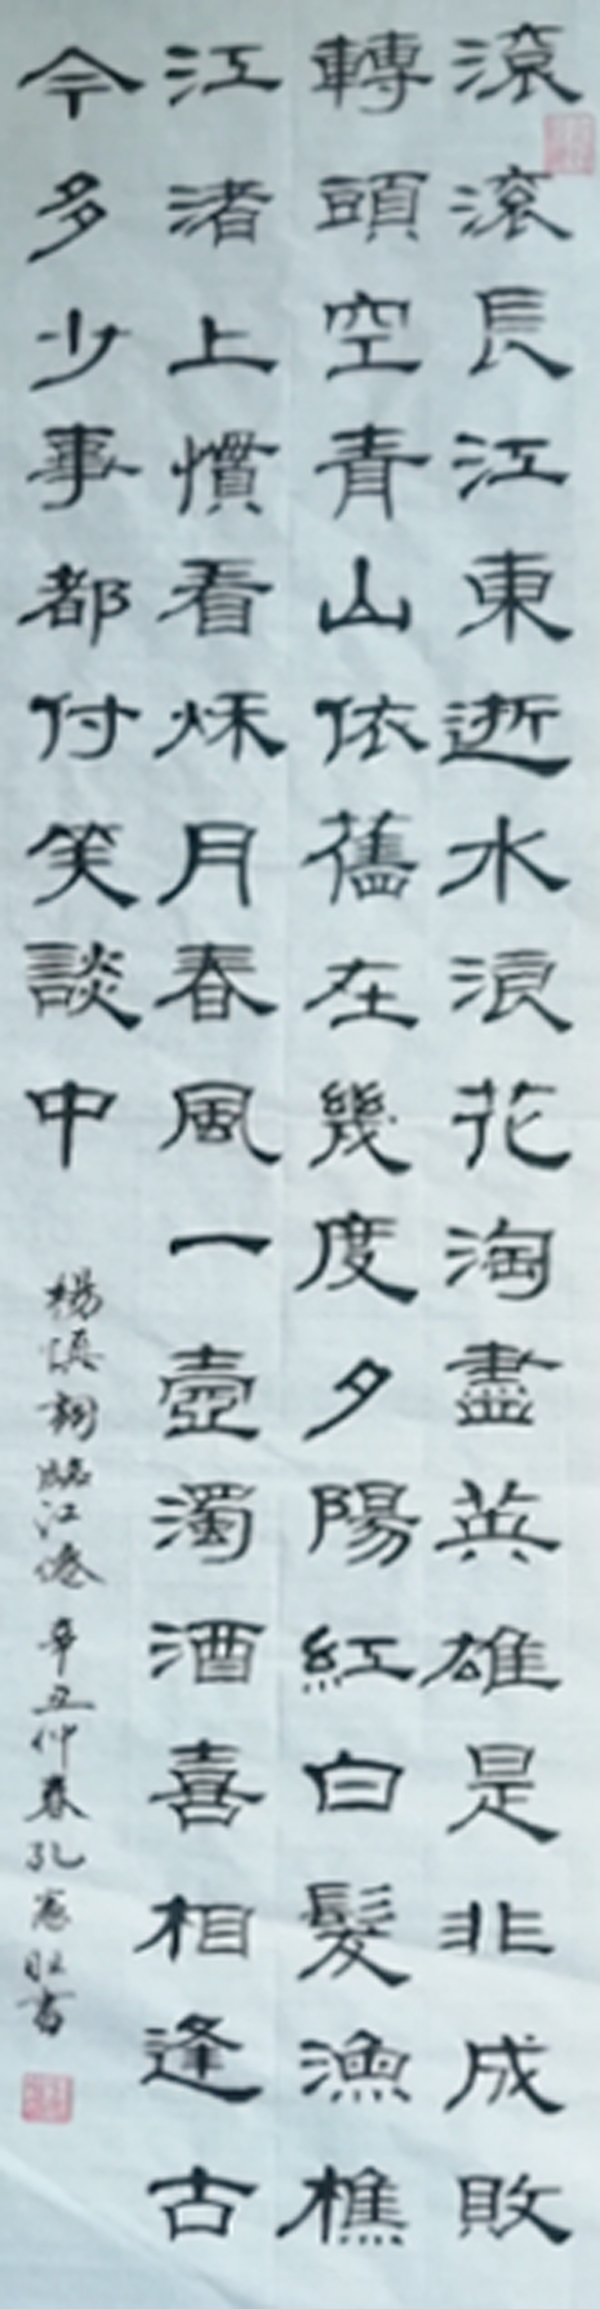 滾滾長江東逝水浪花淘盡英雄是非成敗
轉頭空青山依舊在幾度夕陽紅白髮漁樵
江渚上慣看秌月春風一壺濁酒喜相逢古
今多少事都付笑談中
楊慎詞臨江僊 辛丑仲春孔憲書